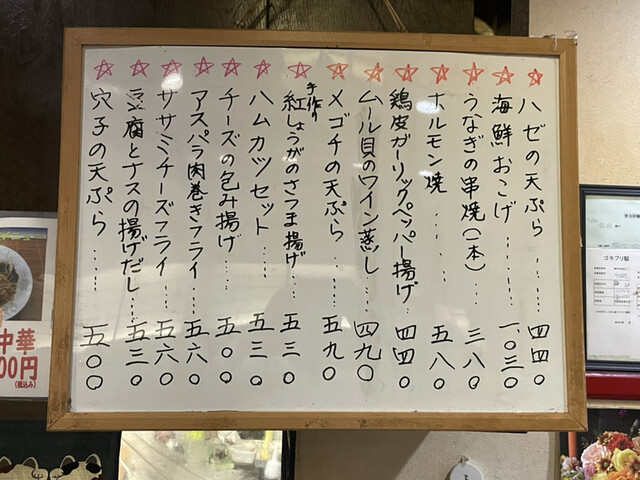 ☆ ハゼの天ぷら …… 四四〇
☆ 海鮮おこげ …… 一、〇三〇
☆ うなぎの串焼(一本) … 三八〇
☆ ホルモン焼 …… 五八〇
☆ 鶏皮ガーリックペッパー揚げ … 四四〇
☆ ムール貝のワイン蒸し … 四九〇
☆ メゴチの天ぷら …… 五九〇
☆ 手作り紅しょうがのさつま揚げ … 五三〇
☆ ハムカツセット …… 五三〇
☆ チーズの包み揚げ …… 五〇〇
☆ アスパラ肉巻きフライ … 五六〇
☆ ササミチーズフライ … 五六〇
☆ 豆腐とナスの揚げだし … 五三〇
☆ 穴子の天ぷら …… 五〇〇
中華
00円
(税込み)
ゴキブリ駆